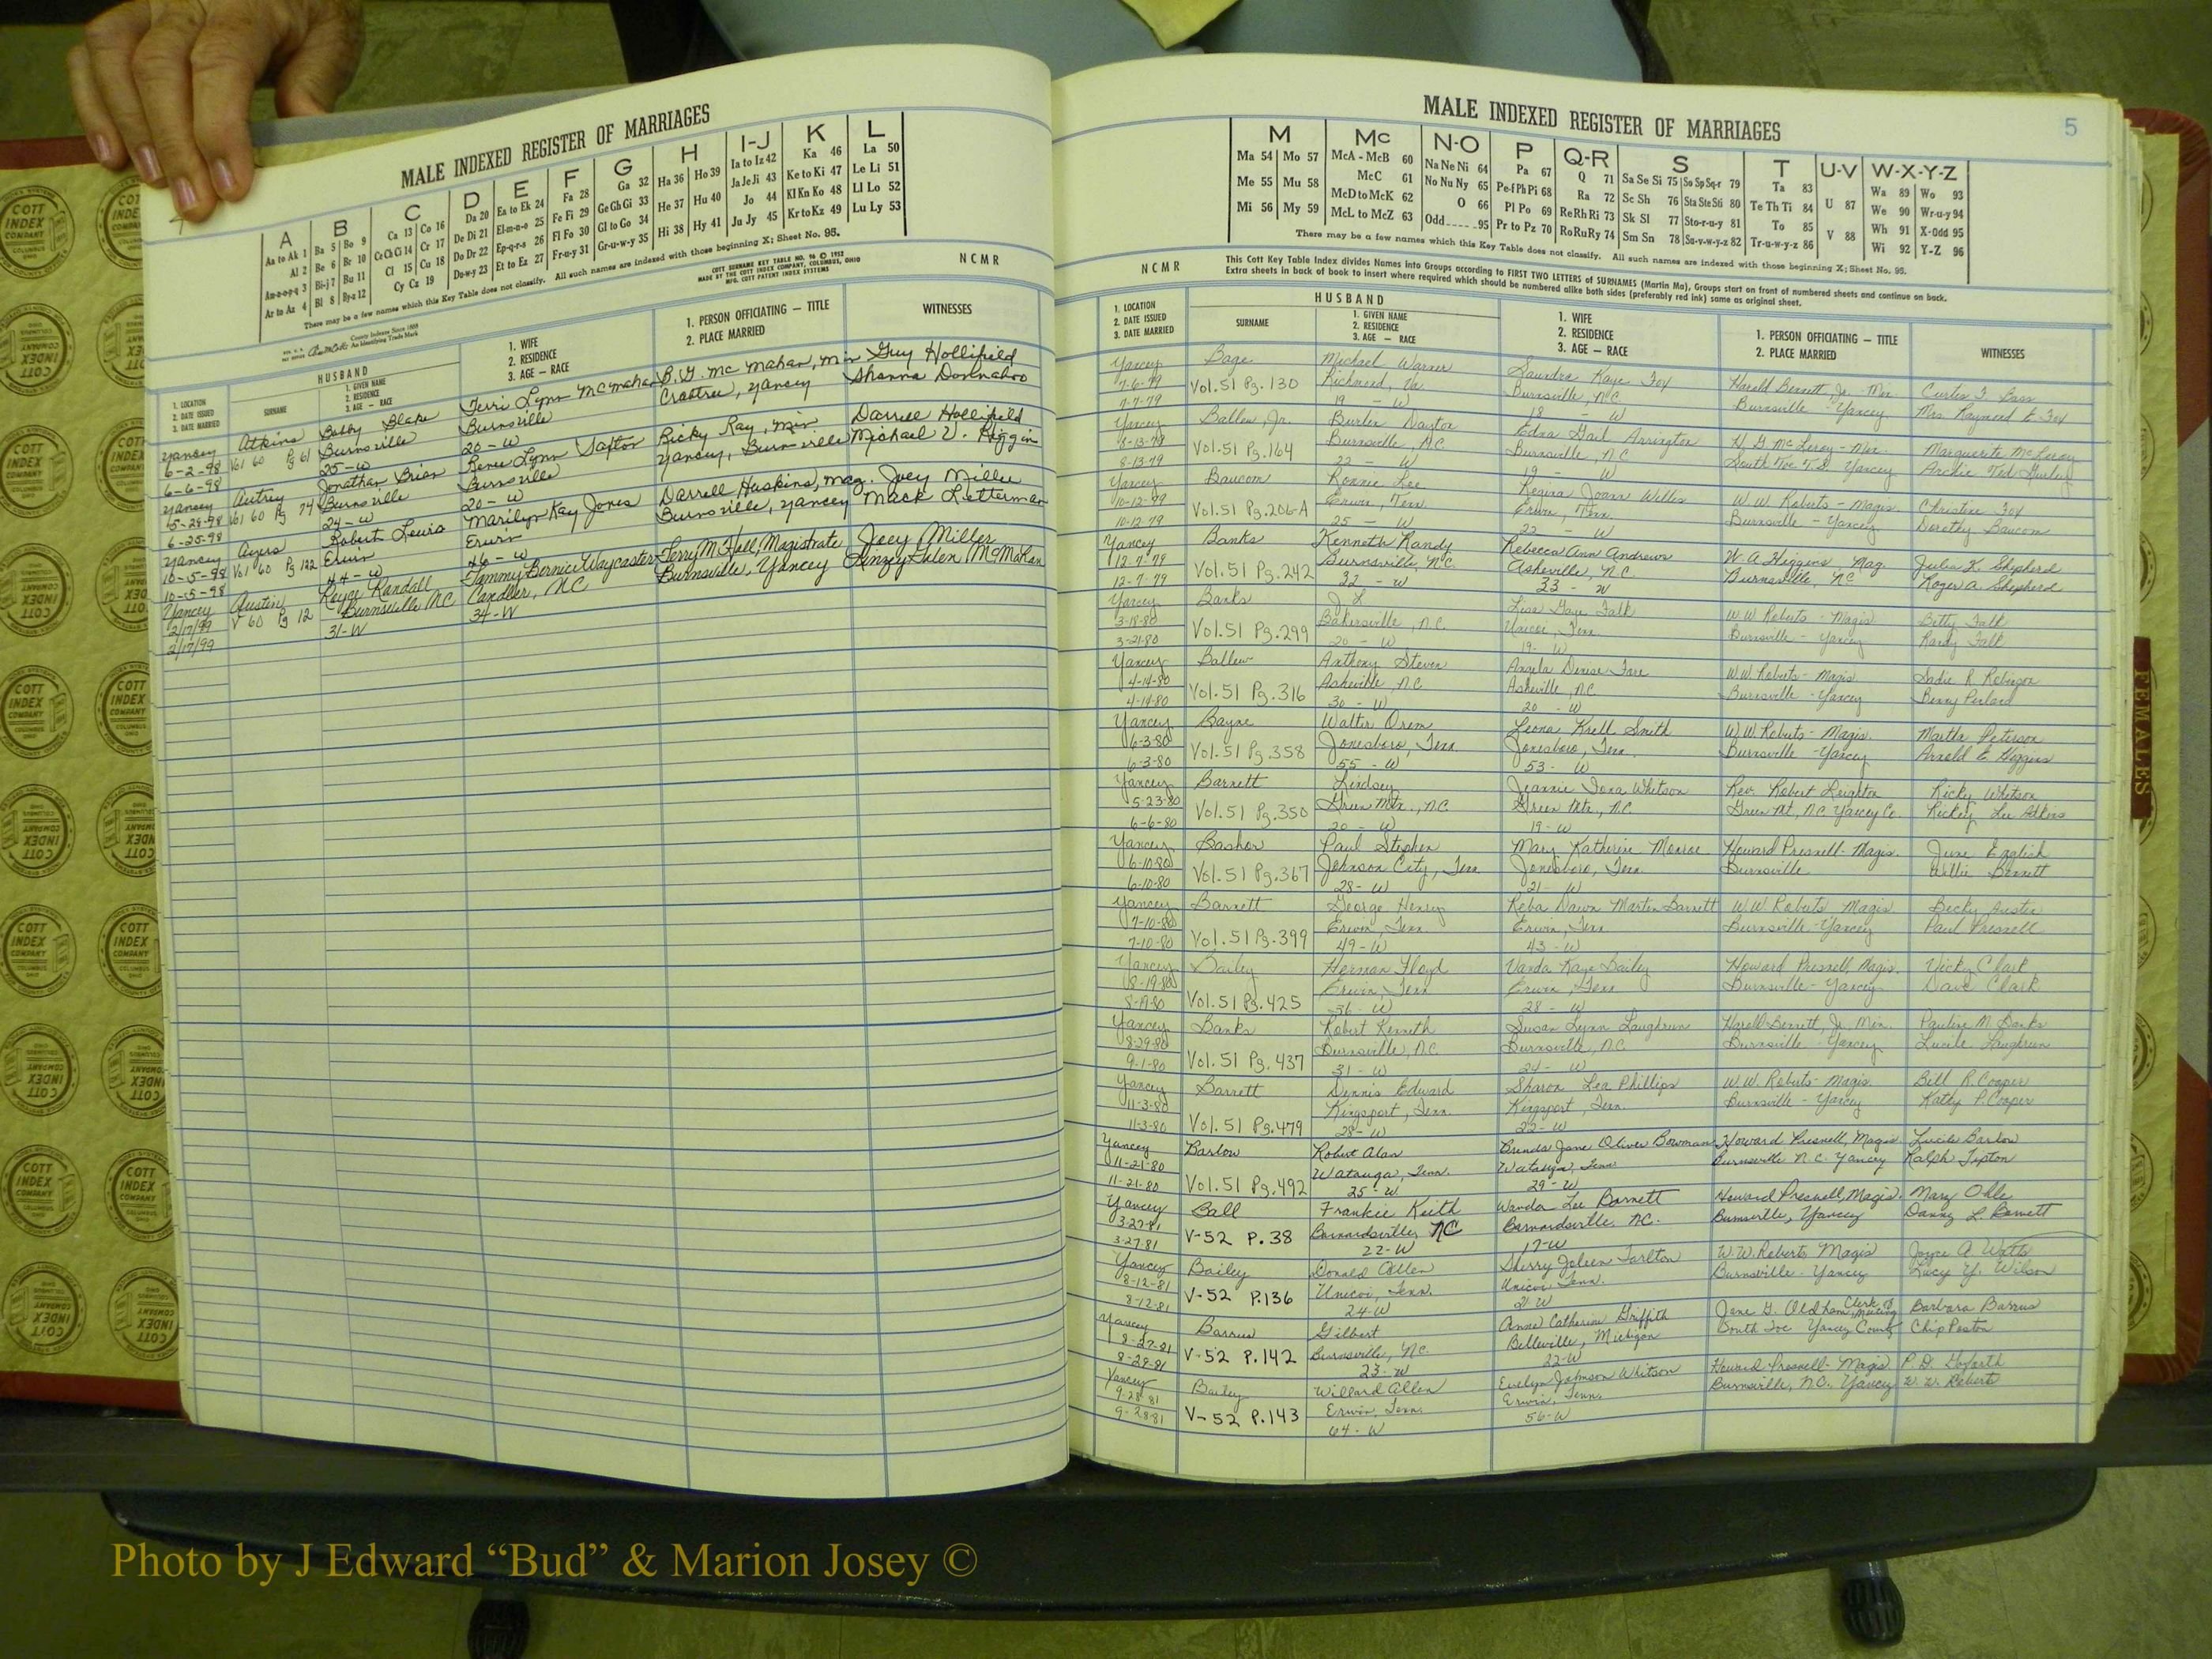 MALE INDEXED REGISTER OF MARRIAGES
A B C D E F G H I-J K L
Aa to Ak 1 Ba 5 Bo 9 Ca 13 Co 16 Da 20 Ea to Ek 24 Fa 28 Ga 32 Ha 36 Ho 39 Ia to Iz 42 Ka 46 La 50
Al 2 Be 6 Br 10 Ce Ch Ci 14 Cr 17 De Di 21 El-m-n-o 25 Fe Fi 29 Ge Gh Gi 33 He 37 Hu 40 Ja Je Ji 43 Ke to Ki 47 Le Li 51
Am-n-o-p-q 3 Bi-j 7 Bu 11 Cl 15 Cu 18 Do Dr 22 Ep-q-r-s 26 Fl Fo 30 Gl to Go 34 Hi 38 Hy 41 Jo 44 Kl Kn Ko 48 Ll Lo 52
Ar to Az 4 Bl 8 By-z 12 Cy Cz 19 Du-w-y 23 Et to Ez 27 Fr-u-y 31 Gr-u-w-y 35 Ju Jy 45 Kr to Kz 49 Lu Ly 53
There may be a few names which this Key Table does not classify. All such names are indexed with those beginning X; Sheet No. 95.
COTT SURNAME KEY TABLE NO. 96 © 1952
MADE BY THE COTT INDEX COMPANY, COLUMBUS, OHIO
MFG. COTT PATENT INDEX SYSTEMS
NCMR
County Indexes Since 1888
An Identifying Trade Mark
1. LOCATION
2. DATE ISSUED
3. DATE MARRIED
HUSBAND
SURNAME
1. GIVEN NAME
2. RESIDENCE
3. AGE — RACE
1. WIFE
2. RESIDENCE
3. AGE — RACE
1. PERSON OFFICIATING — TITLE
2. PLACE MARRIED
WITNESSES
Yancey Atkins Bobby Blake Terri Lynn McMahan B.G. McMahan, Min Guy Hollifield
6-2-98 Vol 60 Pg 61 Burnsville Burnsville Crabtree, Yancey Shanna Donnahoo
6-6-98 25-W 20-W
Yancey Autrey Jonathan Brian Renee Lynn Ricky Ray, Min. Darrell Hollifield
5-29-98 Vol 60 Pg 74 Burnsville Burnsville Yancey, Burnsville Michael V.
6-25-98 24-W 20-W
Yancey Ayers Robert Louis Marilyn Kay Jones Darrell Huskins, Mag. Joey Miller
10-5-98 Vol 60 Pg 122 Erwin Erwin Burnsville, Yancey Mack Letterman
10-5-98 44-W 46-W
Yancey Austin Royce Randall Tammy Bernice Waycaster Terry M Hall, Magistrate Joey Miller
2/17/99 V 60 Pg 12 Burnsville NC Candler, NC Burnsville, Yancey McMahan
2/17/99 31-W 34-W
MALE INDEXED REGISTER OF MARRIAGES 5
M Mc N-O P Q-R S T U-V W-X-Y-Z
Ma 54 Mo 57 McA - McB 60 Na Ne Ni 64 Pa 67 Q 71 Sa Se Si 75 So Sp Sq-r 79 Ta 83 U 87 Wa 89 Wo 93
Me 55 Mu 58 McC 61 No Nu Ny 65 Pe-f Ph Pi 68 Ra 72 Sc Sh 76 Sta Ste Sti 80 Te Th Ti 84 V 88 We 90 Wr-u-y 94
Mi 56 My 59 McD to McK 62 O 66 Pl Po 69 Re Rh Ri 73 Sk Sl 77 Sto-r-u-y 81 To 85 Wh 91 X-Odd 95
McL to McZ 63 Odd 95 Pr to Pz 70 Ro Ru Ry 74 Sm Sn 78 Su-v-w-y-z 82 Tr-u-w-y-z 86 Wi 92 Y-Z 96
There may be a few names which this Key Table does not classify. All such names are indexed with those beginning X; Sheet No. 95.
NCMR
This Cott Key Table Index divides Names into Groups according to FIRST TWO LETTERS of SURNAMES (Martin Ma), Groups start on front of numbered sheets and continue on back.
Extra sheets in back of book to insert where required which should be numbered alike both sides (preferably red ink) same as original sheet.
1. LOCATION
2. DATE ISSUED
3. DATE MARRIED
HUSBAND
SURNAME
1. GIVEN NAME
2. RESIDENCE
3. AGE — RACE
1. WIFE
2. RESIDENCE
3. AGE — RACE
1. PERSON OFFICIATING — TITLE
2. PLACE MARRIED
WITNESSES
Yancey Bage Michael Warner Saundra Kaye Fox Harold Bennett, Jr. - Min. Curtis F.
7-6-79 Vol.51 Pg.130 Richmond, Va Burnsville, N.C. Burnsville - Yancey Mrs. Raymond E. Fox
7-7-79 19 - W 18 - W
Yancey Ballew, Jr. Burlen Dayton Edna Gail Arrington McLeroy - Min. Marguerite McLeroy
8-13-79 Vol.51 Pg.164 Burnsville, N.C. Burnsville, N.C. South Toe T.S. Yancey Archie
8-13-79 22 - W 19 - W
Yancey Baucom Ronnie Lee Regina Joann Willis W.W. Roberts - Magis. Christine Fox
10-12-79 Vol.51 Pg.206-A Erwin, Tenn. Erwin, Tenn. Burnsville - Yancey Dorothy Baucom
10-12-79 25 - W 22 - W
Yancey Banks Kenneth Randy Rebecca Ann Andrews W.A. Higgins, Mag. Julia K. Shepherd
12-7-79 Vol.51 Pg.242 Burnsville, N.C. Asheville, N.C. Burnsville NC Roger A. Shepherd
12-7-79 32 - W 33 - W
Yancey Banks J L Lisa Gaye Falk W.W. Roberts - Magis. Betty Falk
3-18-80 Vol.51 Pg.299 Bakersville, N.C. Unicoi, Tenn Burnsville - Yancey Randy Falk
3-21-80 20 - W 19 - W
Yancey Ballew Anthony Steven Angela Denise W.W. Roberts - Magis. Sadie R. Robinson
4-14-80 Vol.51 Pg.316 Asheville, N.C. Asheville, N.C. Burnsville - Yancey
4-14-80 30 - W 20 - W
Yancey Bayne Walter Orem Leona Krell Smith W.W. Roberts - Magis. Martha Peterson
6-3-80 Vol.51 Pg.358 Jonesboro, Tenn. Jonesboro, Tenn. Burnsville - Yancey Arnold E. Higgins
6-3-80 55 - W 53 - W
Yancey Barnett Lindsey Jeannie Iona Whitson Rev. Robert Leighton Ricky Whitson
5-23-80 Vol.51 Pg.350 Green Mtn., N.C. Green Mtn., N.C. Green Mt, N.C. Yancey Co. Rickey Lee Atkins
6-6-80 20 - W 19 - W
Yancey Bashor Paul Stephen Mary Katherine Monroe Howard Presnell - Magis. June English
6-10-80 Vol.51 Pg.367 Johnson City, Tenn Jonesboro, Tenn Burnsville Willie Bennett
6-10-80 28 - W 21 - W
Yancey Barnett George Henry Reba Dawn Martin Barnett W.W. Roberts Magis. Becky Austin
7-10-80 Vol.51 Pg.399 Erwin, Tenn. Erwin, Tenn. Burnsville - Yancey Paul Presnell
7-10-80 49 - W 43 - W
Yancey Bailey Herman Floyd Vanda Kaye Bailey Howard Presnell, Magis. Vicky Clark
8-19-80 Vol.51 Pg.425 Erwin, Tenn Erwin, Tenn Burnsville - Yancey Dave Clark
8-19-80 56 - W 28 - W
Yancey Banks Robert Kenneth Susan Lynn Laughrun Harold Bennett, Jr. Min. Pauline M. Banks
8-29-80 Vol.51 Pg.437 Burnsville, N.C. Burnsville, N.C. Burnsville Yancey Lucile Laughrun
9-1-80 31 - W 24 - W
Yancey Barrett Dennis Edward Sharon Lea Phillips W.W. Roberts - Magis. Bill R. Cooper
11-3-80 Vol.51 Pg.479 Kingsport, Tenn. Kingsport, Tenn. Burnsville - Yancey Kathy P. Cooper
11-3-80 28 - W 22 - W
Yancey Barlow Robert Alan Brenda Jane Oliver Bowman Howard Presnell, Magis. Lucile Barlow
11-21-80 Vol.51 Pg.492 Watauga, Tenn Watauga, Tenn Burnsville N.C. Yancey Ralph Tipton
11-21-80 25 - W 29 - W
Yancey Ball Frankie Keith Wanda Lee Barnett Howard Presnell, Magis. Mary Ohle
3-27-81 V-52 P.38 Barnardsville, NC Barnardsville, N.C. Burnsville, Yancey Danny L. Barnett
3-27-81 22-W 17-W
Yancey Bailey Donald Allen Sherry Joleen Tarlton W.W. Roberts Magis Joyce A. Watts
8-12-81 V-52 P.136 Unicoi, Tenn. Unicoi, Tenn. Burnsville - Yancey Lucy Y. Wilson
8-12-81 24-W 21-W
Yancey Barrus Gilbert Anne Catherine Griffith Jane G. Oldham Clerk of Meeting Barbara Barrus
8-27-81 V-52 P.142 Burnsville, N.C. Belleville, Michigan South Toe Yancey County Chip Poston
8-29-81 23-W 22-W
Yancey Bailey Willard Allen Evelyn Johnson Whitson Howard Presnell - Magis P.D.
9-28-81 V-52 P.143 Erwin, Tenn. Erwin, Tenn. Burnsville, N.C. Yancey
9-28-81 64 - W 56-W
FEMALES
COTT INDEX COMPANY COLUMBUS OHIO
Photo by J Edward “Bud” & Marion Josey ©